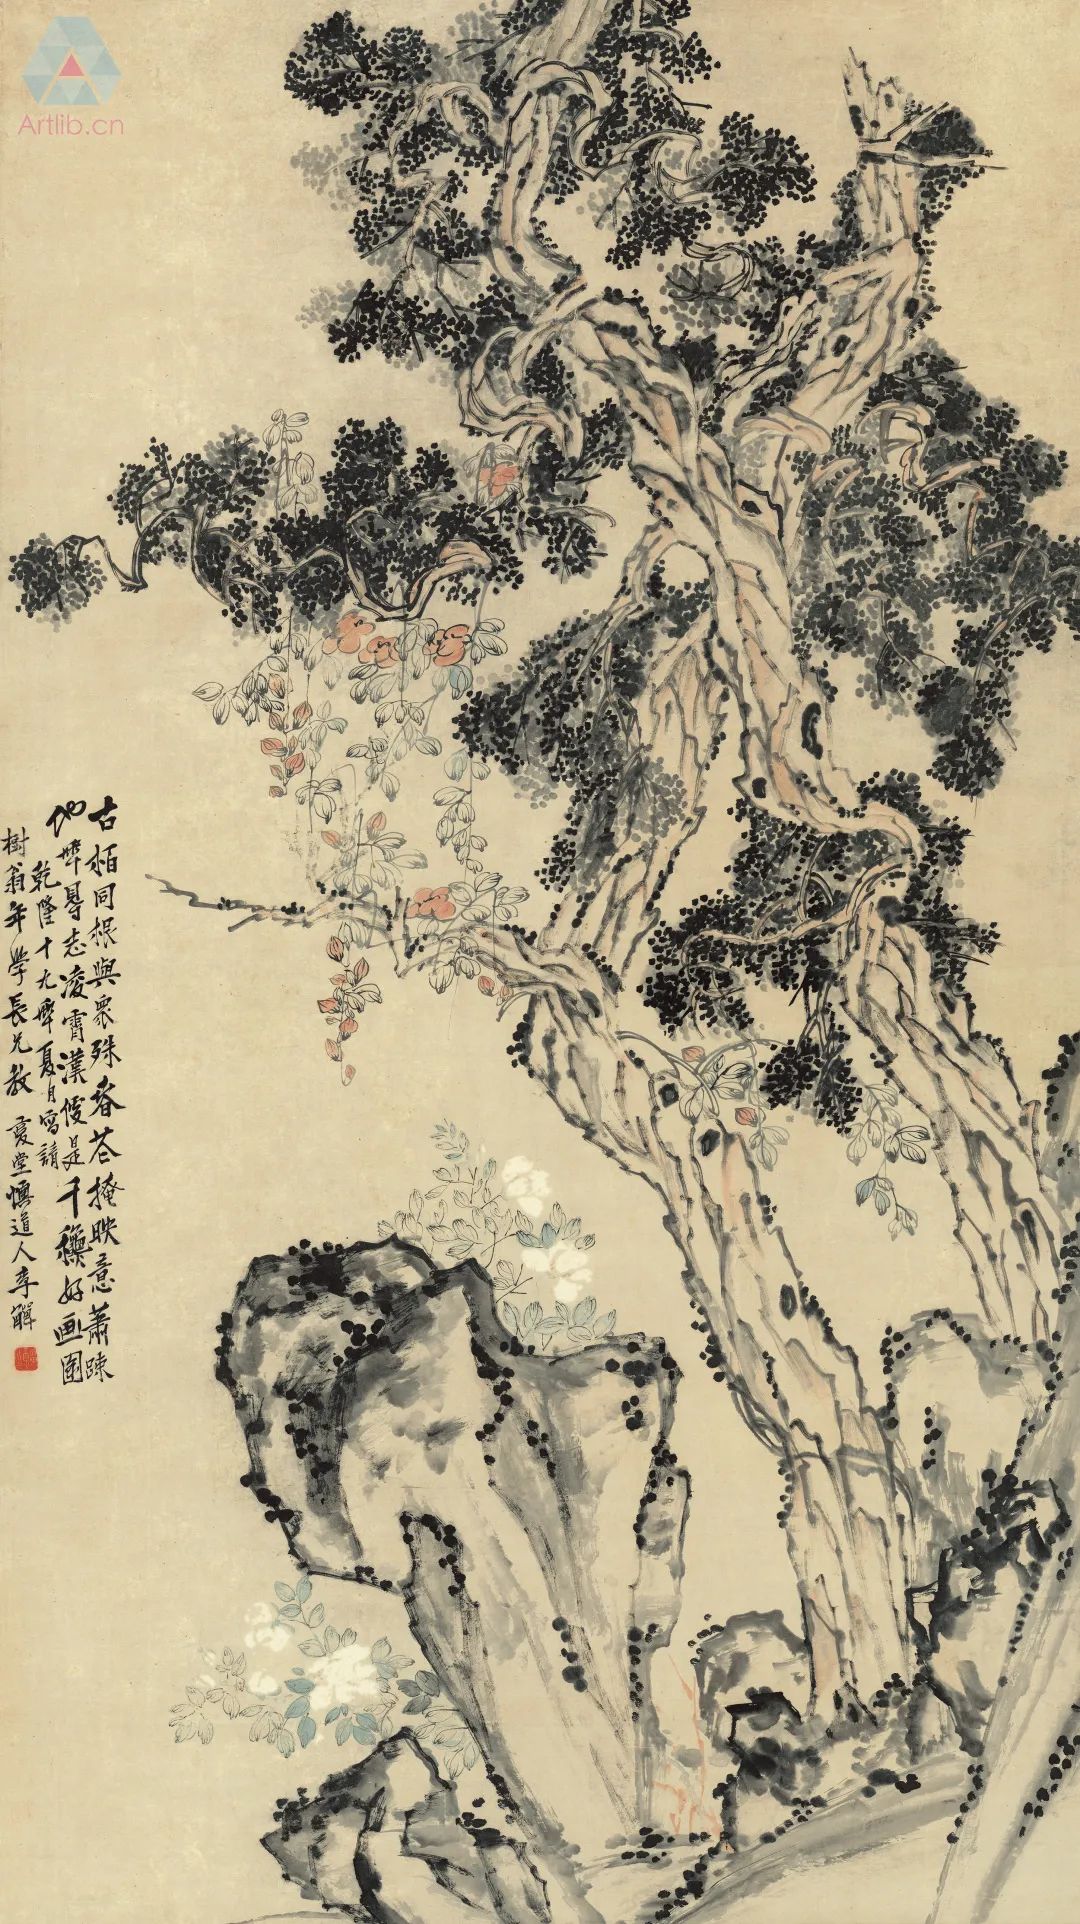 Artlib.cn
古柏同根與眾殊春花掩映意蕭踈
他年得志凌霄漢便是千穐好画圖
乾隆十九年夏日寫請
樹翁年學長兄教 復堂懊道人李觶